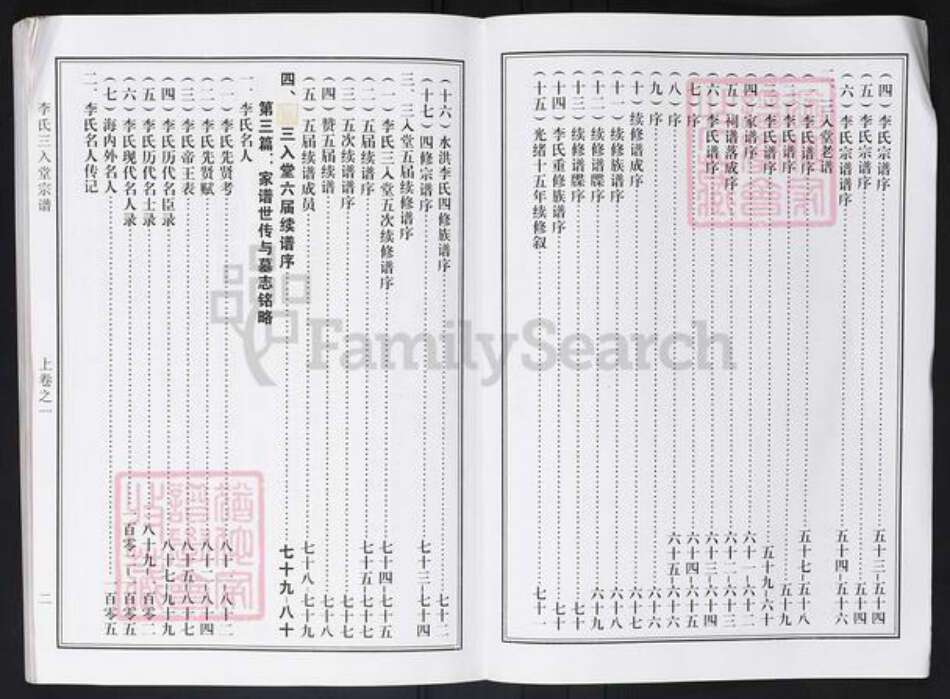 （四）李氏宗谱序……五十三–五十四
（五）李氏宗谱序……五十四
（六）李氏宗谱谱序……五十四–五十六
二、三入堂老谱
（一）李氏谱序……五十七–五十八
（二）李氏谱序……五十九
（三）李氏谱序……五十九–六十
（四）家谱序……六十一–六十二
（五）祠谱落成序……六十二–六十三
（六）李氏谱序……六十三–六十四
（七）序……六十四–六十五
（八）序……六十五–六十六
（九）序……六十六
（十）续修谱成序……六十七
（十一）续修族谱序……六十八
（十二）续修谱牒序……六十九
（十三）续修谱牒序
（十四）李氏重修族谱序……七十
（十五）光绪十五年续修叙……七十一
（十六）水洪李氏四修族谱序……七十二
（十七）四修宗谱序……七十三–七十四
三、三入堂五届续修谱序
（一）李氏三入堂五次续修谱序……七十四–七十五
（二）五届续谱序……七十五–七十七
（三）五次续谱谱序……七十七
（四）赞五届续谱……七十八
（五）五届续谱成员……七十八–七十九
四、三入堂六届续谱序……七十九–八十
第三篇：家谱世传与墓志铭略
一、李氏名人
（一）李氏先贤考……八十一–八十二
（二）李氏先贤赋……八十二–八十四
（三）李氏帝王表……八十五–八十七
（四）李氏历代名臣录……八十七–八十九
（五）李氏历代名士录……八十九–一百零二
（六）李氏现代名人录……一百零二–一百零五
（七）海内外名人……一百零五
二、李氏名人传记
李氏三入堂宗谱
上卷之一
二
FamilySearch